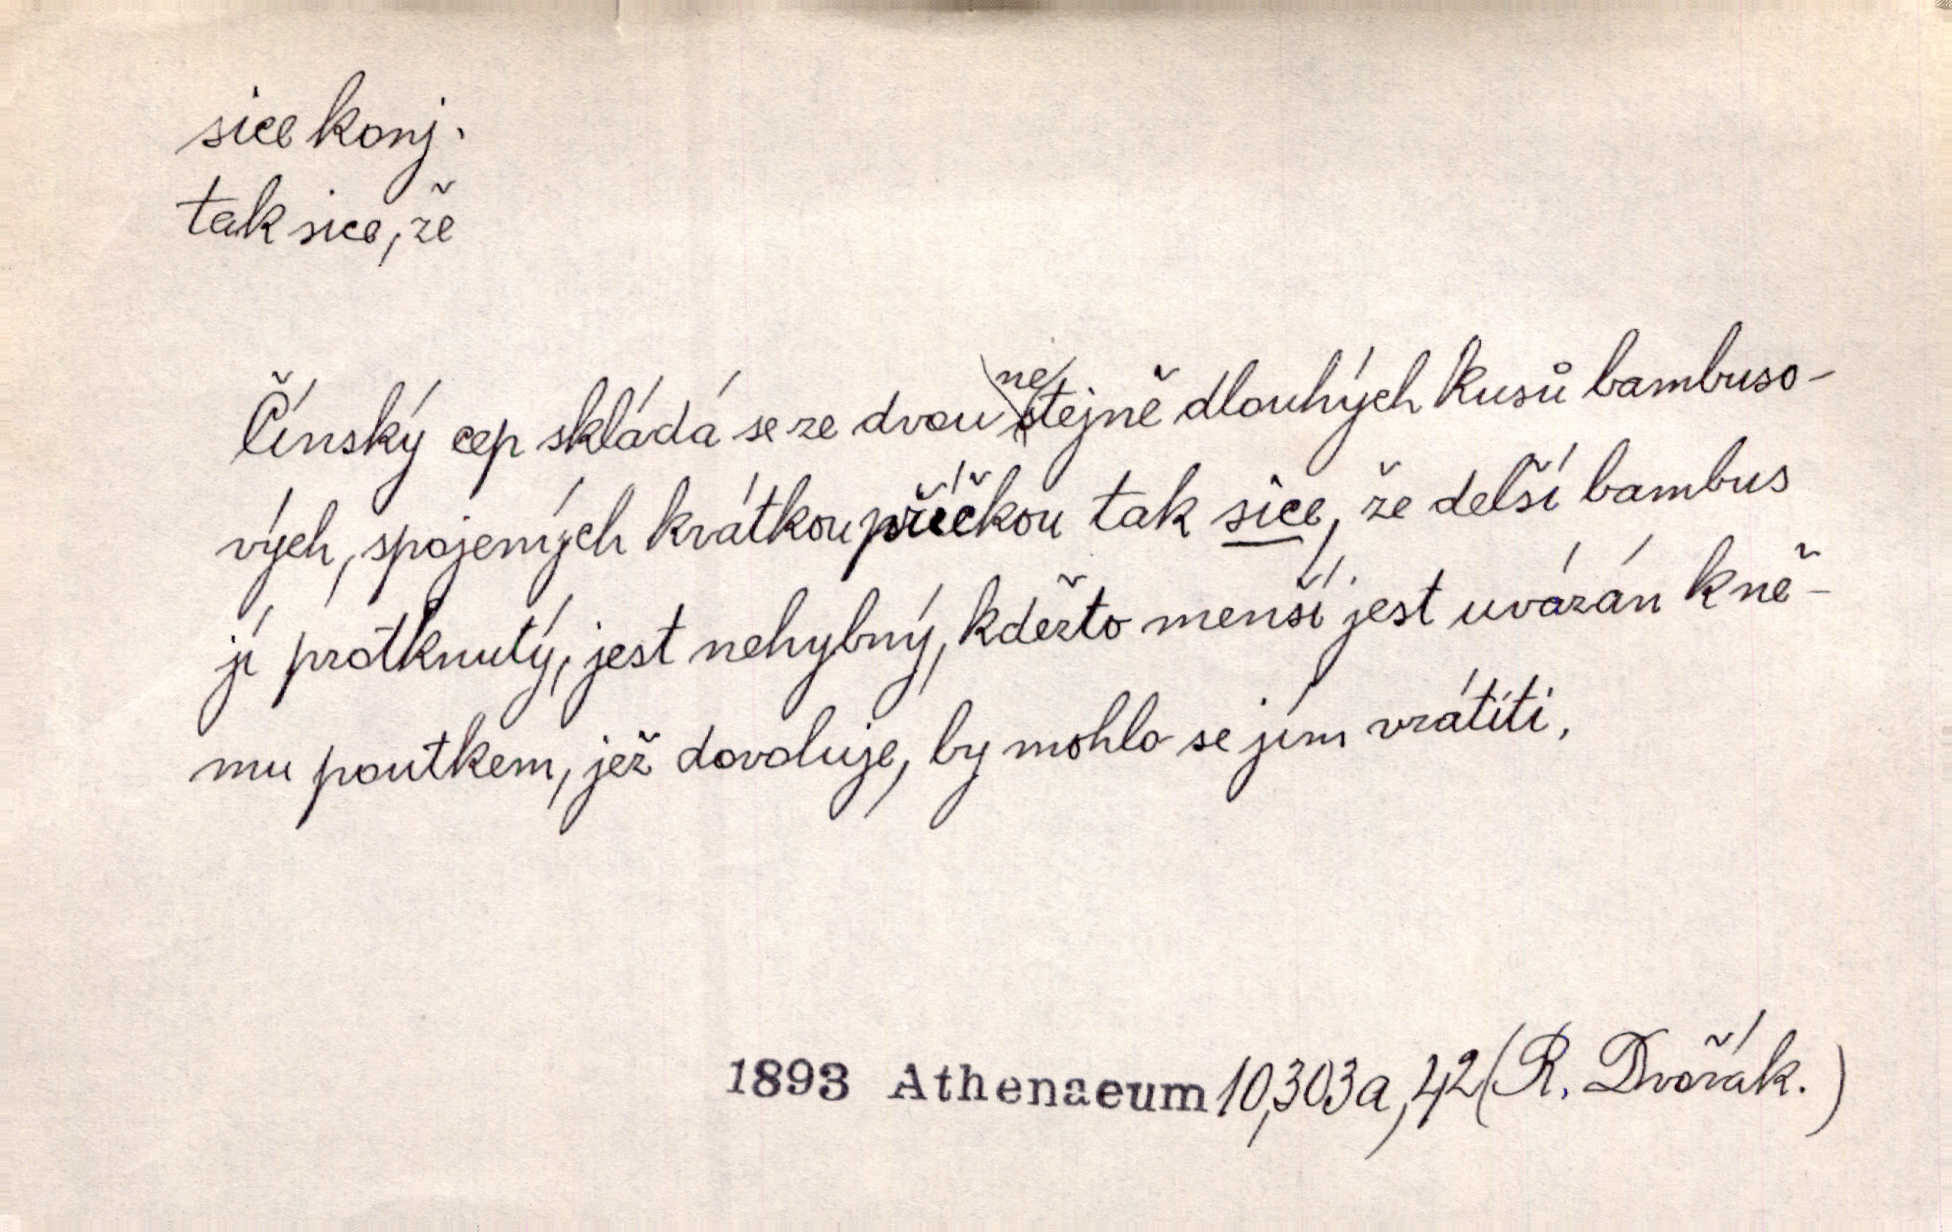 sice konj.
tak sice, že
Čínský cep skládá se ze dvou nestejně dlouhých kusů bambuso-
vých, spojených krátkou příčkou tak sice, že delší bambus
jí protknutý, jest nehybný, kdežto menší jest uvázán k ně-
mu poutkem, jež dovoluje, by mohlo se jím vrátiti.
1893 Athenaeum 10,303a,42 (R. Dvořák.)